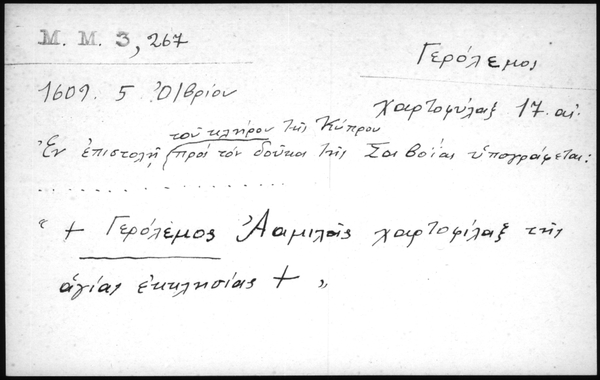 Μ. Μ. 3, 267
Γερόλεμος
1609. 5 Ὀ/βρίου
χαρτοφύλαξ 17. αἰ.
τοῦ κλήρου τῆς Κύπρου
Ἐν ἐπιστολῇ πρὸς τὸν δοῦκα τῆς Σαβοΐας ὑπογράφεται:
. . . . . . . . . . . . . . . . . . . . . .
“ + Γερόλεμος χαρτοφίλαξ τῆς
ἁγίας ἐκκλησίας + „